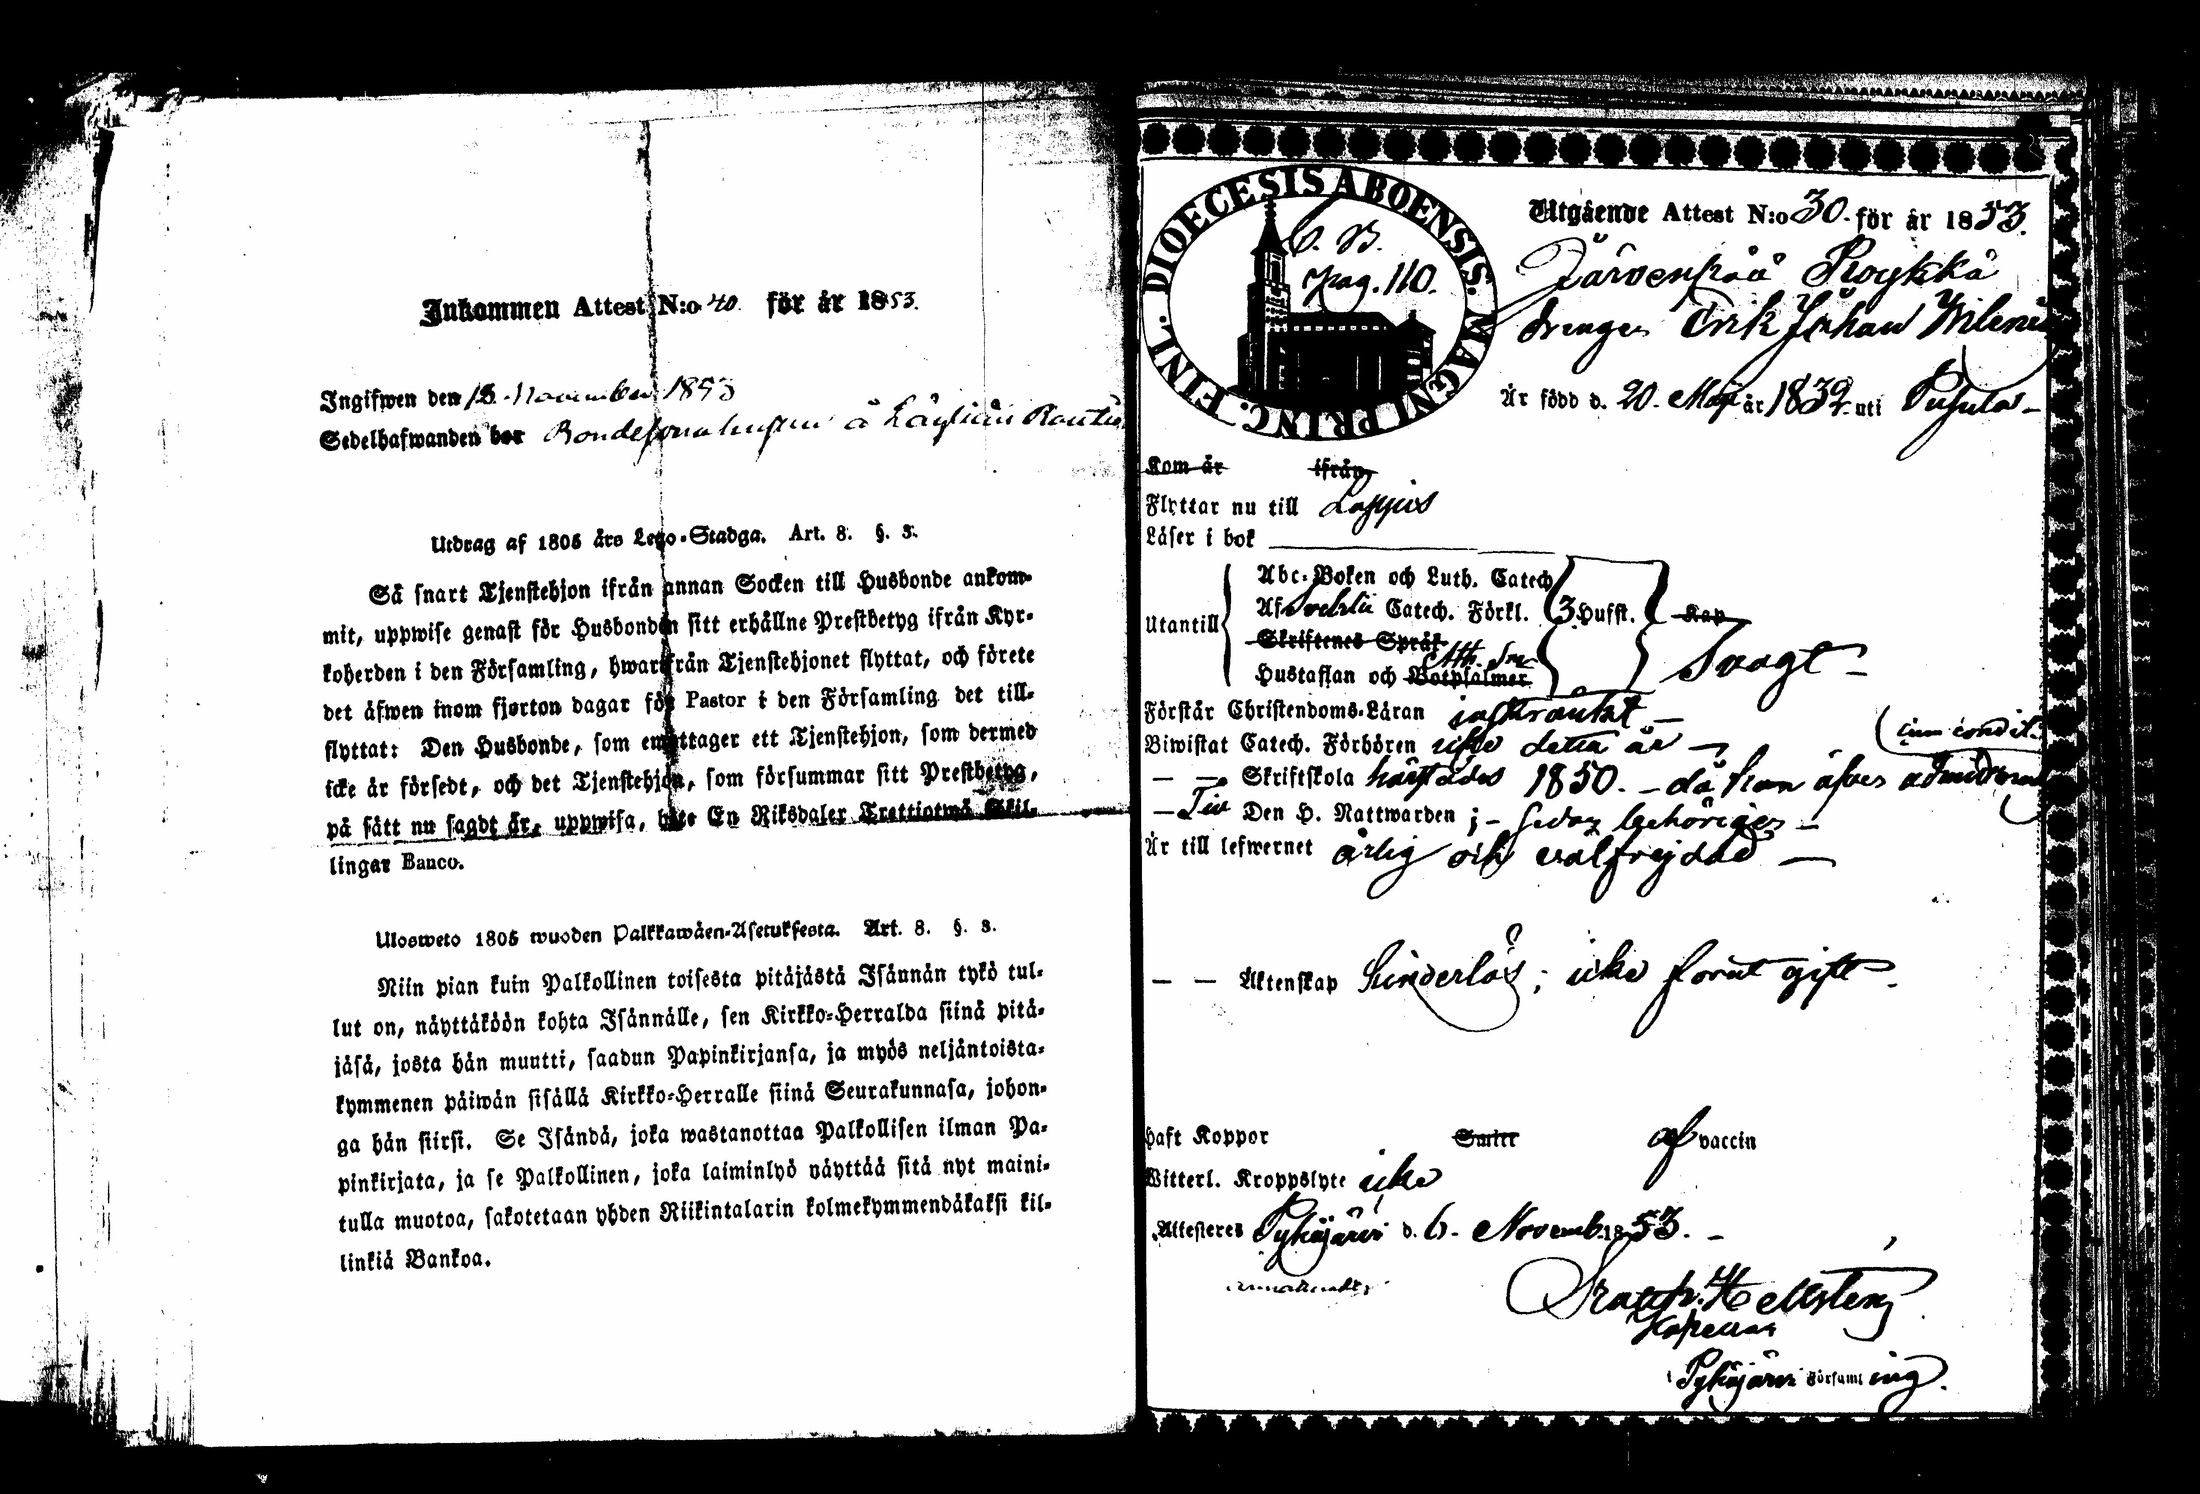 Inkommen Attest N:o 40. för år 1853.
Ingifwen den 13 November 1853
Sedelhafwanden bor Bondesona husen å Läyliäis
Utdrag af 1805 års Lego-Stadga. Art. 8. §. 3.
Så snart Tjenstehjon ifrån annan Socken till Husbonde ankom-
mit, uppwise genast för Husbonden sitt erhållne Prestbetyg ifrån Kyr-
koherden i den Församling, hwarifrån Tjenstehjonet flyttat, och förete
det äfwen inom fjorton dagar för Pastor i den Församling det till-
flyttat: Den Husbonde, som emottager ett Tjenstehjon, som dermed
icke är försedt, och det Tjenstehjon, som försummar sitt Prestbetyg,
på sätt nu sagdt är, uppwisa, böte En Riksdaler Trettiotwå Skil-
lingar Banco.
Ulosweto 1805 wuoden Palkkawäen-Asetuksesta. Art. 8. §. 3.
Niin pian kuin Palkollinen toisesta pitäjästä Isännän tykö tul-
lut on, näyttäköön kohta Isännälle, sen Kirkko-Herralda siinä pitä-
jäsä, josta hän muutti, saadun Papinkirjansa, ja myös neljäntoista-
kymmenen päiwän sisällä Kirkko-Herralle siinä Seurakunnasa, johon-
ga hän siirsi. Se Isändä, joka wastanottaa Palkollisen ilman Pa-
pinkirjata, ja se Palkollinen, joka laiminlyö näyttää sitä nyt maini-
tulla muotoa, sakotetaan yhden Riikintalarin kolmekymmendäkaksi kil-
linkiä Bankoa.
FINL. DIOECESIS ABOENSIS. MAGNI PRINC.
C. B.
pag. 110.
Utgående Attest N:o 30. för år 1853.
Järvenpää Roykkä
drengen Erik Johan
Är född d. 20. Maji år 1832. uti Pusula -
Kom år ifrån
Flyttar nu till Loppis
Läser i bok
Utantill
Abc-Boken och Luth. Catech
Af Svebilii Catech. Förkl. 3 Hufst. Kap
Skriftenes Språk
Hustaflan och Botpsalmer Ath. Sym
Svagt -
Förstår Christendoms-Läran inskränkt -
Biwistat Catech. Förhören icke detta år -
(cum condit.
— — Skriftskola härstädes 1850. - då han äfven
— Till Den H. Nattwarden ; - sedan behörigen -
Är till lefwernet ärlig och välfrejdad -
— — Äktenskap hinderlös ; icke förut gift -
Haft Koppor Smitt af vaccin
Witterl. Kroppslyte icke
Attesteres Pyhäjärvi d. 6. Novemb. 1853. -
Hellstén
Kapellan
i Pyhäjärvi Församling.